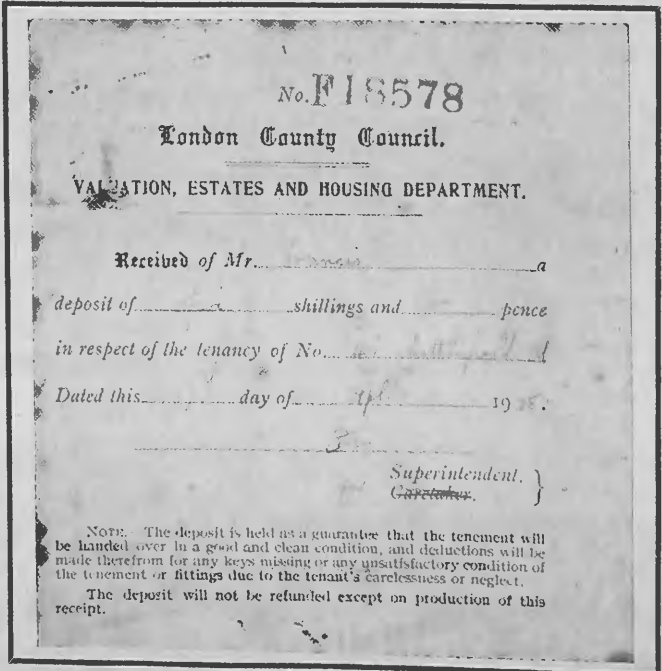 No. F18578
London County Council.
VALUATION, ESTATES AND HOUSING DEPARTMENT.
Received of Mr. a
deposit of shillings and pence
in respect of the tenancy of No.
Dated this day of 19
Superintendent. }
Caretaker.
NOTE. The deposit is held as a guarantee that the tenement will
be handed over in a good and clean condition, and deductions will be
made therefrom for any keys missing or any unsatisfactory condition of
the tenement or fittings due to the tenant's carelessness or neglect.
The deposit will not be refunded except on production of this
receipt.